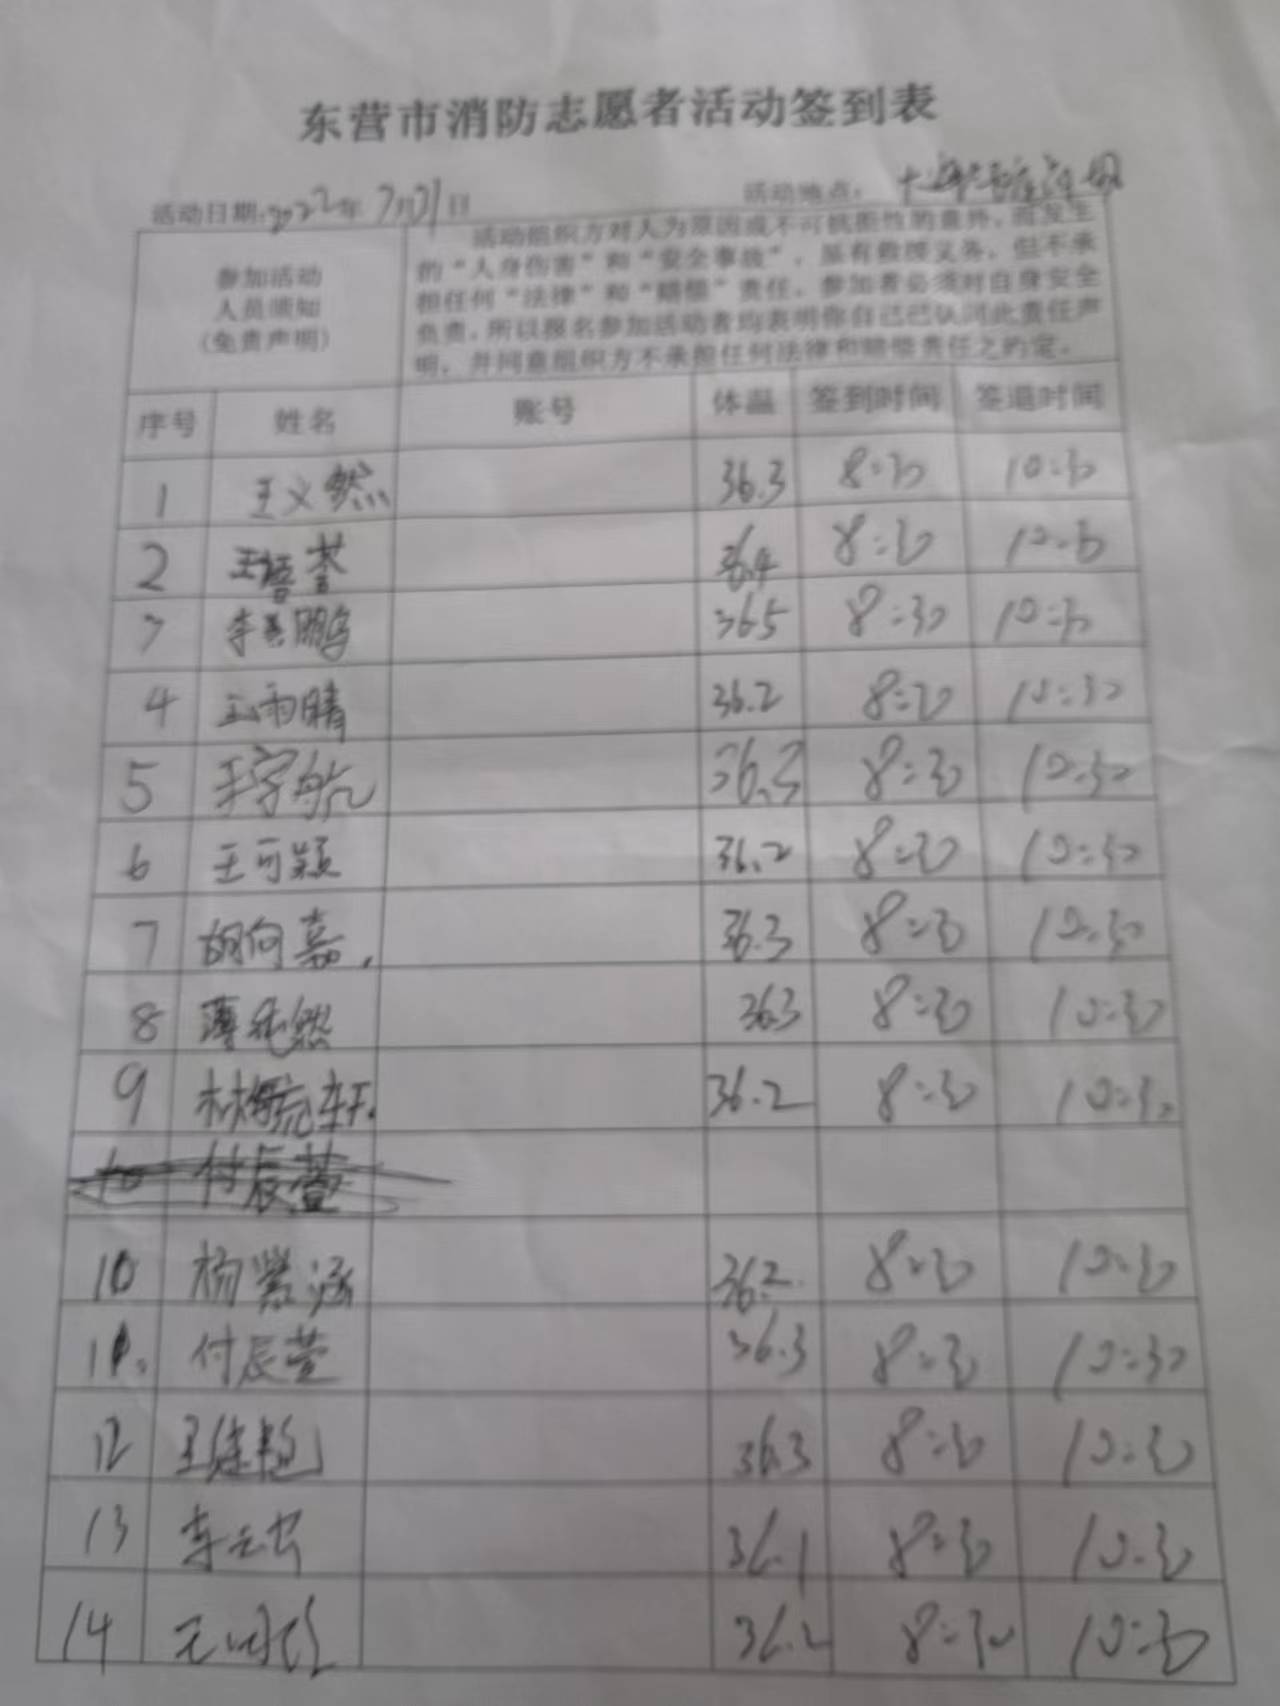 东营市消防志愿者活动签到表
活动日期:2022年7月31日 活动地点:
参加活动
人员须知
(免责声明)
活动组织方对人为原因或不可抗拒性的意外，而发生
的“人身伤害”和“安全事故”，虽有救援义务，但不承
担任何“法律”和“赔偿”责任。参加者必须对自身安全
负责，所以报名参加活动者均表明你自己已认同此责任声
明，并同意组织方不承担任何法律和赔偿责任之约定。
序号 姓名 账号 体温 签到时间 签退时间
1 王义然 36.3 8:30 10:30
2 36.4 8:30 10:30
3 36.5 8:30 10:30
4 王雨晴 36.2 8:30 10:30
5 王宇航 36.3 8:30 10:30
6 王可颖 36.2 8:30 10:30
7 胡向嘉. 36.3 8:30 10:30
8 36.3 8:30 10:30
9 36.2 8:30 10:30
10 付辰萱
10 杨 涵 36.2 8:30 10:30
11. 付辰萱 36.3 8:30 10:30
12 36.3 8:30 10:30
13 36.1 8:30 10:30
14 36.2 8:30 10:30